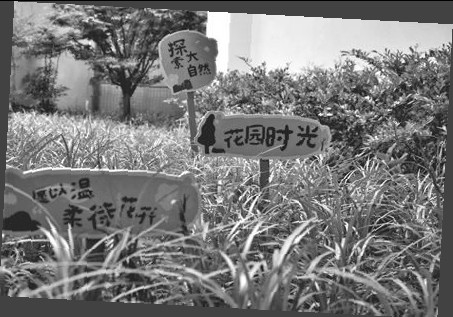 探大
索自然
花园时光
以温
柔待花开